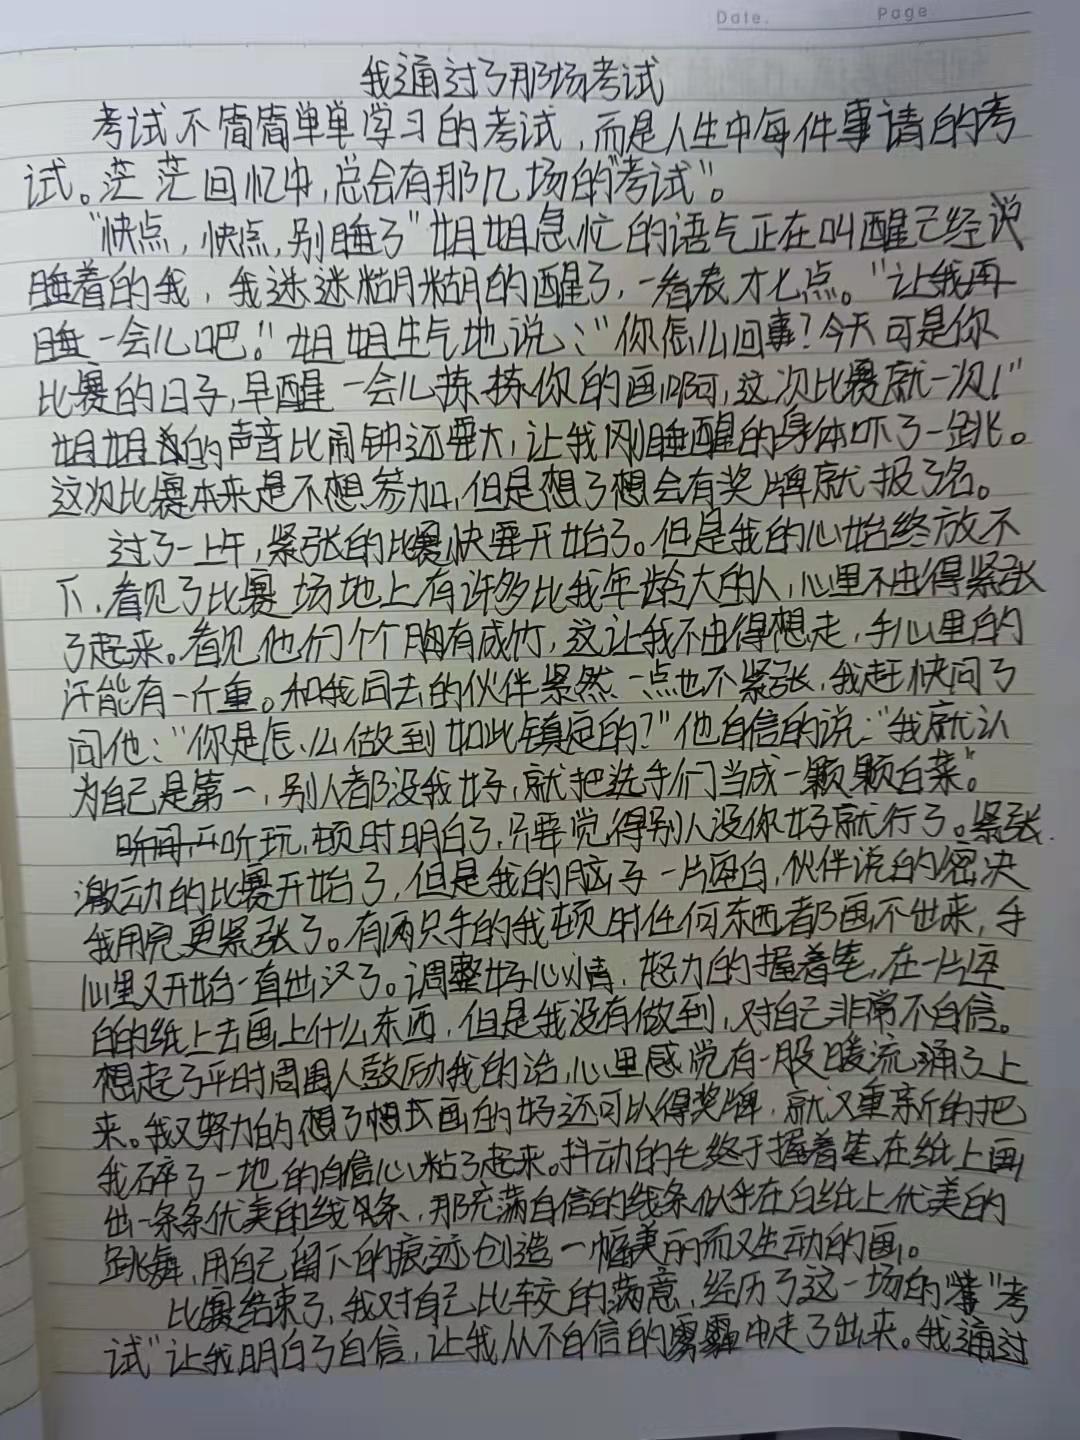 Date.
Page
我通过了那场考试
考试不简简单单学习的考试，而是人生中每件事请的考
试。茫茫回忆中，总会有那几场的“考试”。
“快点，快点，别睡了”姐姐急忙的语气正在叫醒已经说
睡着的我，我迷迷糊糊的醒了，一看表才七点。“让我再
睡一会儿吧！”姐姐生气地说：“你怎么回事？今天可是你
比赛的日子，早醒一会儿拣拣你的画啊，这次比赛就一次！”
姐姐的声音比闹钟还要大，让我刚睡醒的身体吓了一跳。
这次比赛本来是不想参加，但是想了想会有奖牌就报了名。
过了一上午，紧张的比赛快要开始了。但是我的心始终放不
下，看见了比赛场地上有许多比我年龄大的人，心里不由得紧张
了起来。看见他们个个胸有成竹，这让我不由得想走，手心里的
汗能有一斤重。和我同去的伙伴紧然一点也不紧张，我赶快问了
问他：“你是怎么做到如此镇定的？”他自信的说：“我就认
为自己是第一，别人都没我好，就把选手们当成一颗颗白菜”。
听完，顿时明白了，只要觉得别人没你好就行了。紧张
激动的比赛开始了，但是我的脑子一片空白，伙伴说的密决
我用完更紧张了。有两只手的我顿时任何东西都画不出来，手
心里又开始一直出汗了。调整好心情，努力的握着笔，在一片空
白的纸上去画上什么东西，但是我没有做到，对自己非常不自信。
想起了平时周围人鼓励我的话，心里感觉有一股暖流涌了上
来。我又努力的想了想我画的好还可以得奖牌，就又重新的把
我碎了一地的自信心粘了起来。抖动的手终于握着笔在纸上画
出一条条优美的线条，那充满自信的线条似乎在白纸上优美的
跳舞，用自己留下的痕迹创造一幅美丽而又生动的画。
比赛结束了，我对自己比较的满意，经历了这一场的“考
试”让我明白了自信，让我从不自信的雾霾中走了出来。我通过